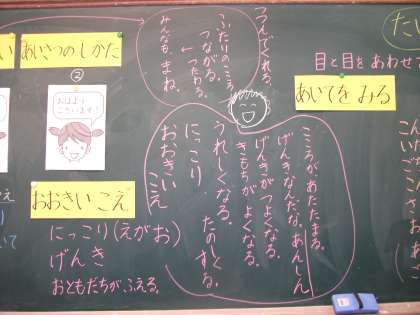 い
あいさつの しかた
②
おはよう
ございます！
おおきい こえ
にっこり(えがお)
げんき
おともだちが ふえる。
つつんでくれる
ふたりのこころ
つながる。
← つたわる。
みんなも、まね。
こころがあたたまる。
げんきなんだな。あんしん
げんきがつよくなる。
きもちがよくなる。
うれしくなる。たのしくなる。
にっこり
おおきい こえ
たい
目と目を あわせて
あいてを みる